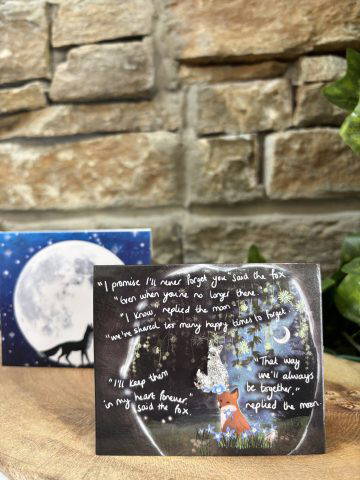 "I promise I'll never forget you" said the fox.
"Even when you're no longer there."
"I know," replied the moon.
"we've shared too many happy times to forget."
"I'll keep them
in my heart forever,"
said the fox.
"That way
we'll always
be together."
replied the moon.